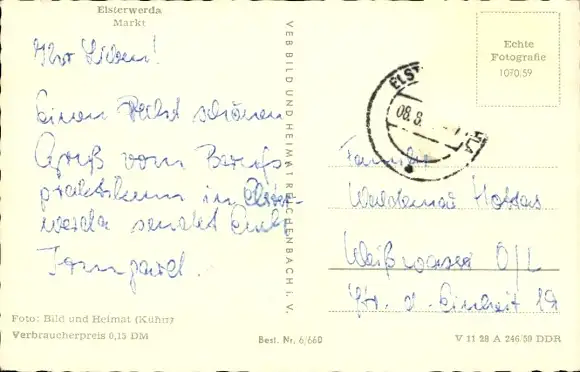 Elsterwerda
Markt
Ihr Lieben!
Einen Recht schönen
Gruß vom Berufs-
praktikum in Elster-
werda sendet Euch
Irmgard.
Foto: Bild und Heimat (Kühn)
Verbraucherpreis 0,15 DM
VEB BILD UND HEIMAT REICHENBACH i. V.
Best. Nr. 6/660
Echte
Fotografie
1070/59
ELST
08.8.
Familie
Waldemar
Weißwasser O/L
Str. d. Einheit 19
V 11 28 A 246/59 DDR